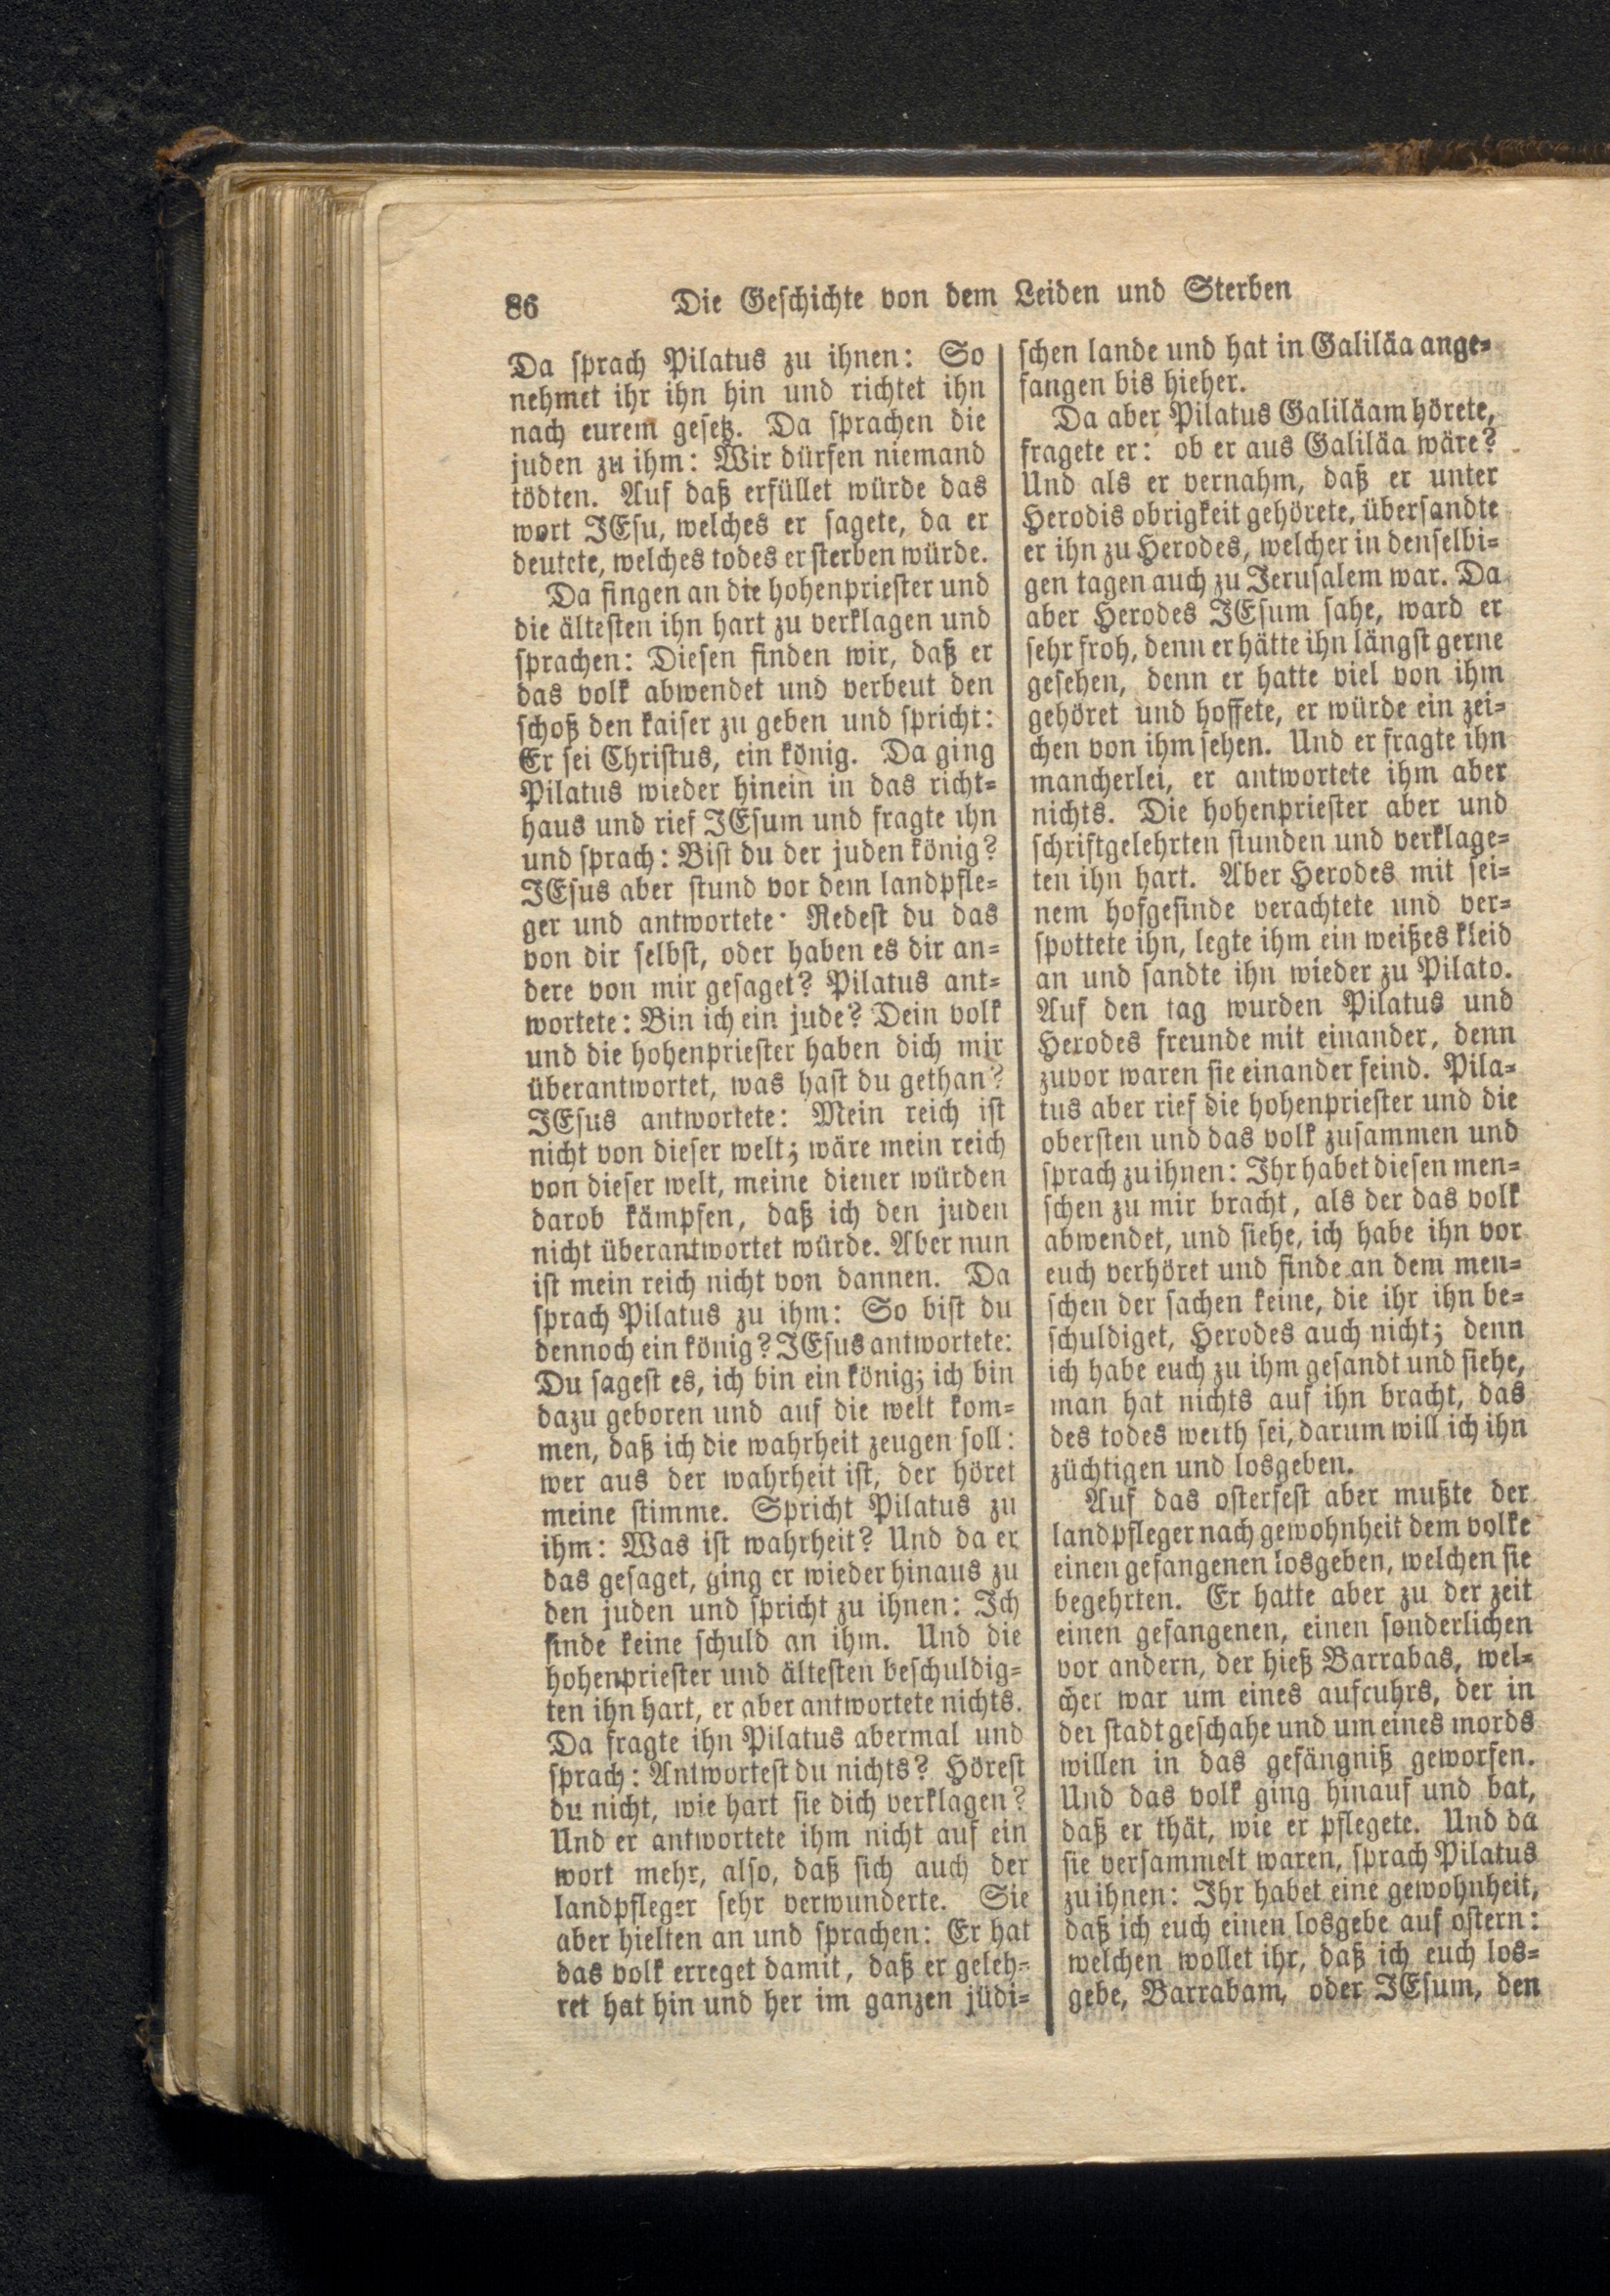 86 Die Geschichte von dem Leiden und Sterben
Da sprach Pilatus zu ihnen: So
nehmet ihr ihn hin und richtet ihn
nach eurem gesetz. Da sprachen die
juden zu ihm: Wir dürfen niemand
tödten. Auf daß erfüllet würde das
wort JEsu, welches er sagete, da er
deutete, welches todes er sterben würde.
Da fingen an die hohenpriester und
die ältesten ihn hart zu verklagen und
sprachen: Diesen finden wir, daß er
das volk abwendet und verbeut den
schoß den kaiser zu geben und spricht:
Er sei Christus, ein könig. Da ging
Pilatus wieder hinein in das richt-
haus und rief JEsum und fragte ihn
und sprach: Bist du der juden könig?
JEsus aber stund vor dem landpfle-
ger und antwortete: Redest du das
von dir selbst, oder haben es dir an-
dere von mir gesaget? Pilatus ant-
wortete: Bin ich ein jude? Dein volk
und die hohenpriester haben dich mir
überantwortet, was hast du gethan?
JEsus antwortete: Mein reich ist
nicht von dieser welt; wäre mein reich
von dieser welt, meine diener würden
darob kämpfen, daß ich den juden
nicht überantwortet würde. Aber nun
ist mein reich nicht von dannen. Da
sprach Pilatus zu ihm: So bist du
dennoch ein könig? JEsus antwortete:
Du sagest es, ich bin ein könig; ich bin
dazu geboren und auf die welt kom-
men, daß ich die wahrheit zeugen soll:
wer aus der wahrheit ist, der höret
meine stimme. Spricht Pilatus zu
ihm: Was ist wahrheit? Und da er
das gesaget, ging er wieder hinaus zu
den juden und spricht zu ihnen: Ich
finde keine schuld an ihm. Und die
hohenpriester und ältesten beschuldig-
ten ihn hart, er aber antwortete nichts.
Da fragte ihn Pilatus abermal und
sprach: Antwortest du nichts? Hörest
du nicht, wie hart sie dich verklagen?
Und er antwortete ihm nicht auf ein
wort mehr, also, daß sich auch der
landpfleger sehr verwunderte. Sie
aber hielten an und sprachen: Er hat
das volk erreget damit, daß er geleh-
ret hat hin und her im ganzen jüdi-
schen lande und hat in Galiläa ange-
fangen bis hieher.
Da aber Pilatus Galiläam hörete,
fragete er: ob er aus Galiläa wäre?
Und als er vernahm, daß er unter
Herodis obrigkeit gehörete, übersandte
er ihn zu Herodes, welcher in denselbi-
gen tagen auch zu Jerusalem war. Da
aber Herodes JEsum sahe, ward er
sehr froh, denn er hätte ihn längst gerne
gesehen, denn er hatte viel von ihm
gehöret und hoffete, er würde ein zei-
chen von ihm sehen. Und er fragte ihn
mancherlei, er antwortete ihm aber
nichts. Die hohenpriester aber und
schriftgelehrten stunden und verklage-
ten ihn hart. Aber Herodes mit sei-
nem hofgesinde verachtete und ver-
spottete ihn, legte ihm ein weißes kleid
an und sandte ihn wieder zu Pilato.
Auf den tag wurden Pilatus und
Herodes freunde mit einander, denn
zuvor waren sie einander feind. Pila-
tus aber rief die hohenpriester und die
obersten und das volk zusammen und
sprach zu ihnen: Ihr habet diesen men-
schen zu mir bracht, als der das volk
abwendet, und siehe, ich habe ihn vor
euch verhöret und finde an dem men-
schen der sachen keine, die ihr ihn be-
schuldiget, Herodes auch nicht; denn
ich habe euch zu ihm gesandt und siehe,
man hat nichts auf ihn bracht, das
des todes werth sei, darum will ich ihn
züchtigen und losgeben.
Auf das osterfest aber mußte der
landpfleger nach gewohnheit dem volke
einen gefangenen losgeben, welchen sie
begehrten. Er hatte aber zu der zeit
einen gefangenen, einen sonderlichen
vor andern, der hieß Barrabas, wel-
cher war um eines aufruhrs, der in
der stadt geschahe und um eines mords
willen in das gefängniß geworfen.
Und das volk ging hinauf und bat,
daß er thät, wie er pflegete. Und da
sie versammelt waren, sprach Pilatus
zu ihnen: Ihr habet eine gewohnheit,
daß ich euch einen losgebe auf ostern:
welchen wollet ihr, daß ich euch los-
gebe, Barrabam, oder JEsum, den